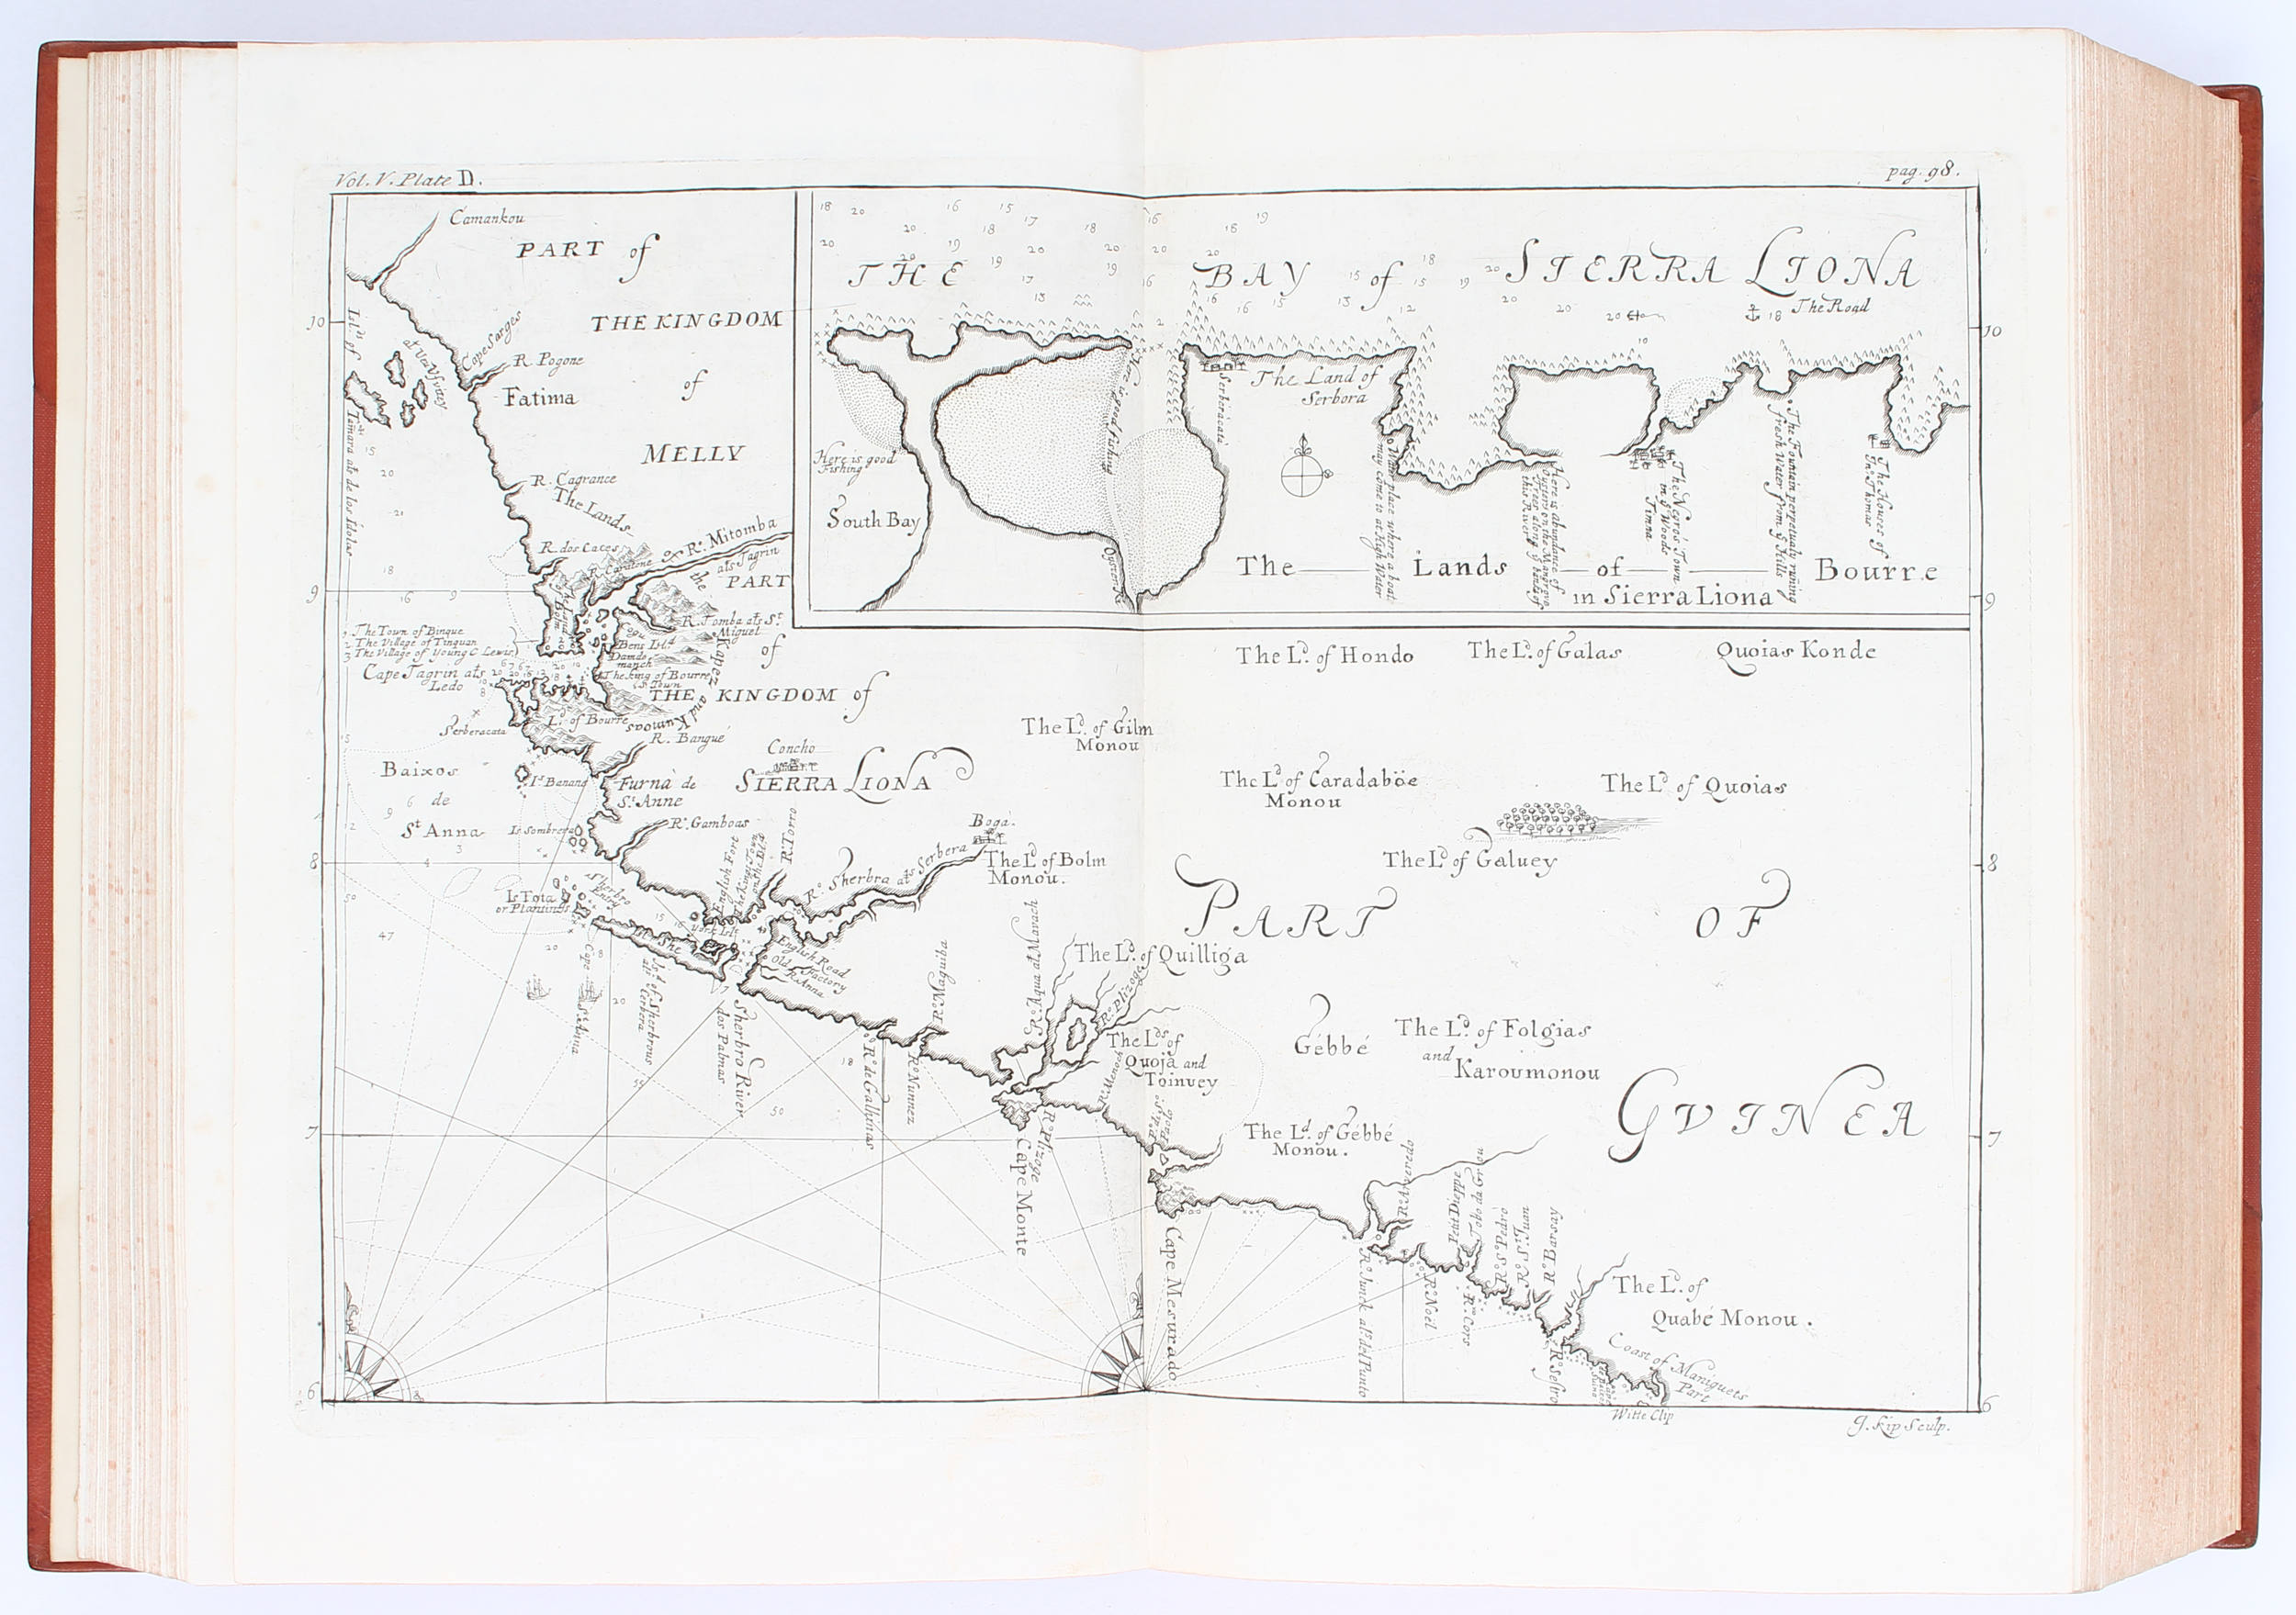 Vol. V. Plate D.
pag. 98.
Camankou
PART of
THE KINGDOM
of
MELLY
Cape Sarges
R. Pogone
Fatima
R. Cagrance
The Lands
R. dos Caces
or Rº. Mitomba
als Tagrin
the
PART
R. Tomba als St.
Miguel
of
1 The Town of Binque
2 The Village of Tinquan
3 The Village of Young C Lewis
Cape Tagrin als
Ledo
Bens Isld.
The King of Bourre
s Town
THE KINGDOM of
Ld. of Bourre
Serberacata
R. Bangue
Concho
SIERRA LIONA
Baixos
de
St Anna
Is. Banana
Furna de
St. Anne
Is Sombrera
Rº. Gamboas
English Fort
R. Torro
Boga.
Rº. Sherbra als Serbera
The Ld. of Bolm
Monou.
Is Tota
or Plantins
York Isle
English Road
Old Factory
R. Anna
Cape
St. Anna
Sherbro River
dos Palmas
Rº. Maguiba
Rº. de Galhinas
Rº. Nunnez
Rº. Aqua al Manach
The Ld. of Quilliga
Rº. Plizoge
The Lds. of
Quoja and
Toinvey
Rº. Menoch
Rº. Plizoge
Cape Monte
Cape Mesurado
THE BAY of SIERRA LIONA
The Road
Here is good
Fishing
South Bay
Here is good fishing
Serberacata
The Land of
Serbora
Water place where a boat
may come to at High Water
Here is abundance of
Oysters on the Mangrove
Trees along ye bands of
this River
The Negro's Town
in ye Woods
Timna
The Fountain perpetualy runing
fresh Water from ye Hills
The Houses of
Jno. Thomas
The Lands of Bourre
in Sierra Liona
The Ld. of Hondo
The Ld. of Galas
Quoias Konde
The Ld. of Gilm
Monou
The Ld. of Caradaböe
Monou
The Ld. of Quoias
The Ld. of Galuey
PART OF
GVINEA
Gébbé
The Ld. of Folgias
and
Karoumonou
The Ld. of Gébbé
Monou.
Rº. Junck als del Punto
Petit Dieppe
Rº. Noel
Rº. Cors
Rº. S. Pedro
Rº. St. Juan
Rº. Barsay
The Ld. of
Quabé Monou.
Rº. Sestro
Coast of Maniguets
Part
Witte Clip
J. Kip Sculp.
10
9
8
7
6
10
9
8
7
6